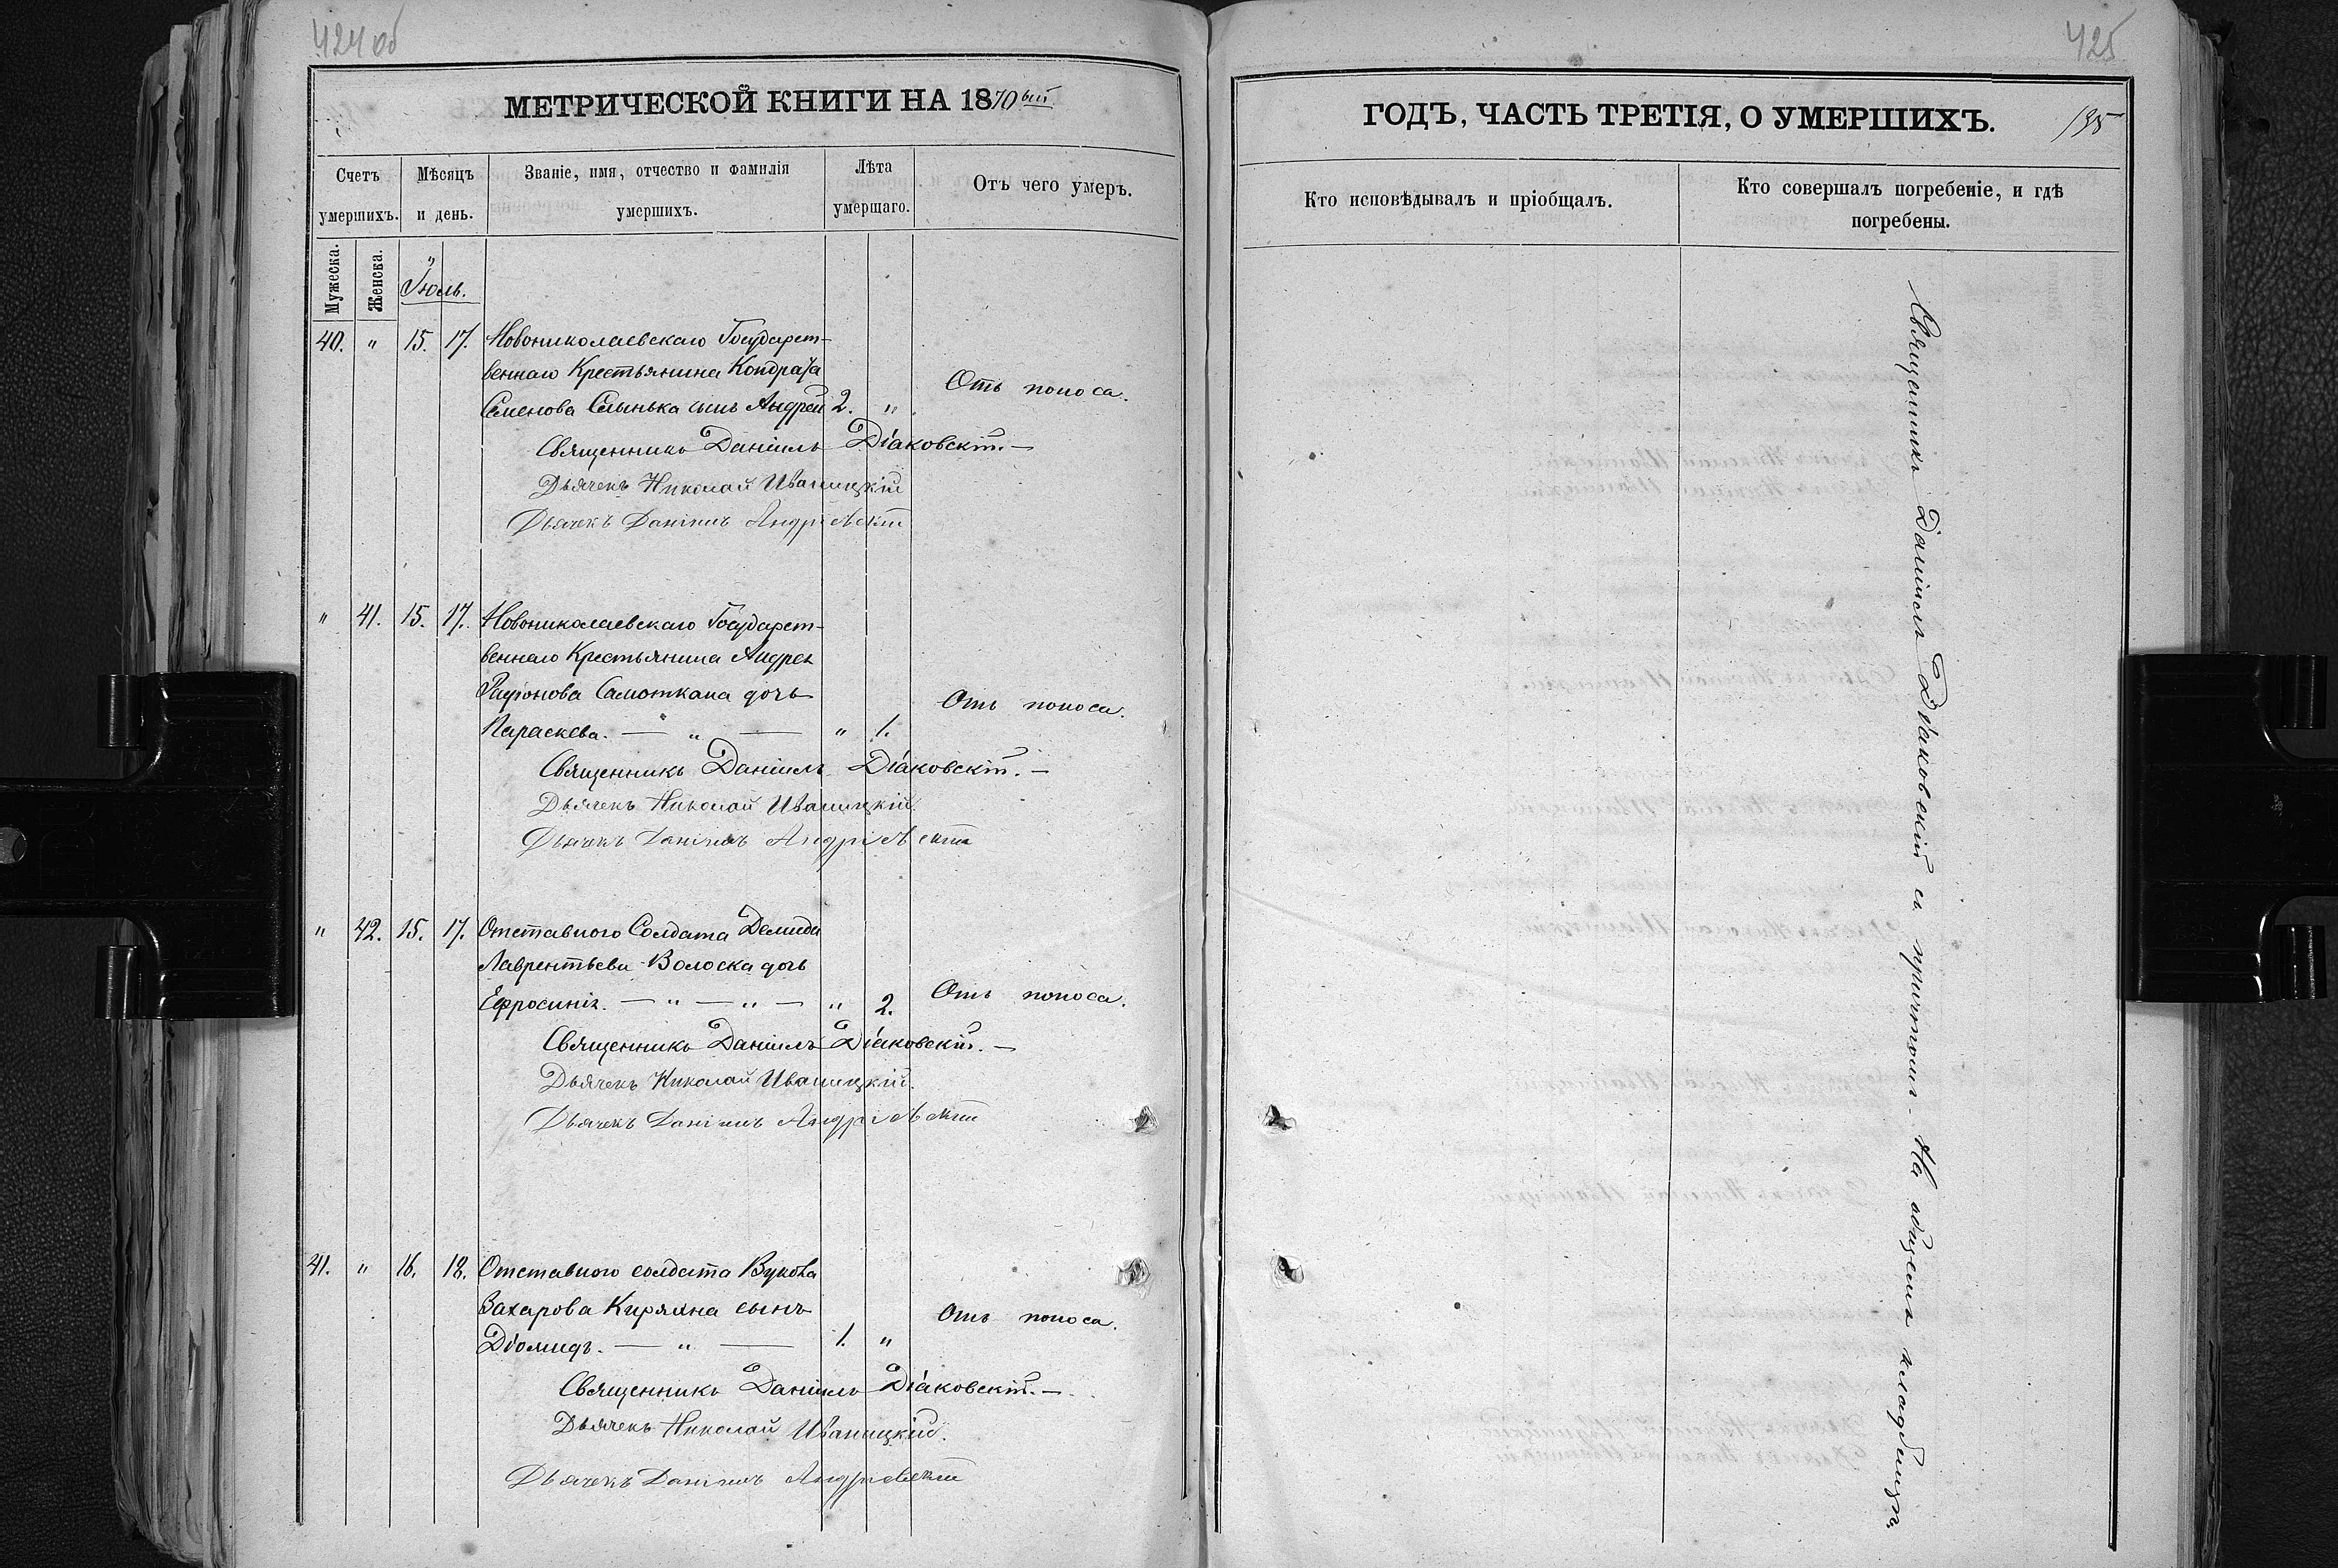 424 об
МЕТРИЧЕСКОЙ КНИГИ НА 1870ый
Счетъ умершихъ.
Мѣсяцъ и день.
Званіе, имя, отчество и фамилія умершихъ.
Лѣта умершаго.
Отъ чего умеръ.
Мужеска.
Женска.
Іюль.
40. " 15. 17. Новониколаевскаго Государст-
веннаго Крестьянина Кондрата
Семенова сынъ Андрей 2. " Отъ поноса.
Священникъ Даніилъ Діаковскій. —
Дьячекъ Николай Иваницкій
Дьячекъ Даніилъ Андріевскій
" 41. 15. 17. Новониколаевскаго Государст-
веннаго Крестьянина Андрея
Самоткана дочь
Параскева. — " — " 1. Отъ поноса.
Священникъ Даніилъ Діаковскій. —
Дьячекъ Николай Иваницкій
Дьячекъ Даніилъ Андріевскій
" 42. 15. 17. Отставного Солдата Демида
Лаврентьева Волоска дочь
Ефросинія. — " — " — " 2. Отъ поноса.
Священникъ Даніилъ Діаковскій. —
Дьячекъ Николай Иваницкій.
Дьячекъ Даніилъ Андріевскій
41. " 16. 18. Отставного солдата Вукола
Захарова сынъ
Діомидъ. — " — 1. " Отъ поноса.
Священникъ Даніилъ Діаковскій. —
Дьячекъ Николай Иваницкій.
Дьячекъ Даніилъ Андріевскій
425
ГОДЪ, ЧАСТЬ ТРЕТІЯ, О УМЕРШИХЪ.
135
Кто исповѣдывалъ и пріобщалъ.
Кто совершалъ погребеніе, и гдѣ
погребены.
Священникъ Даніилъ Діаковскій съ причтомъ - На общемъ кладбищѣ